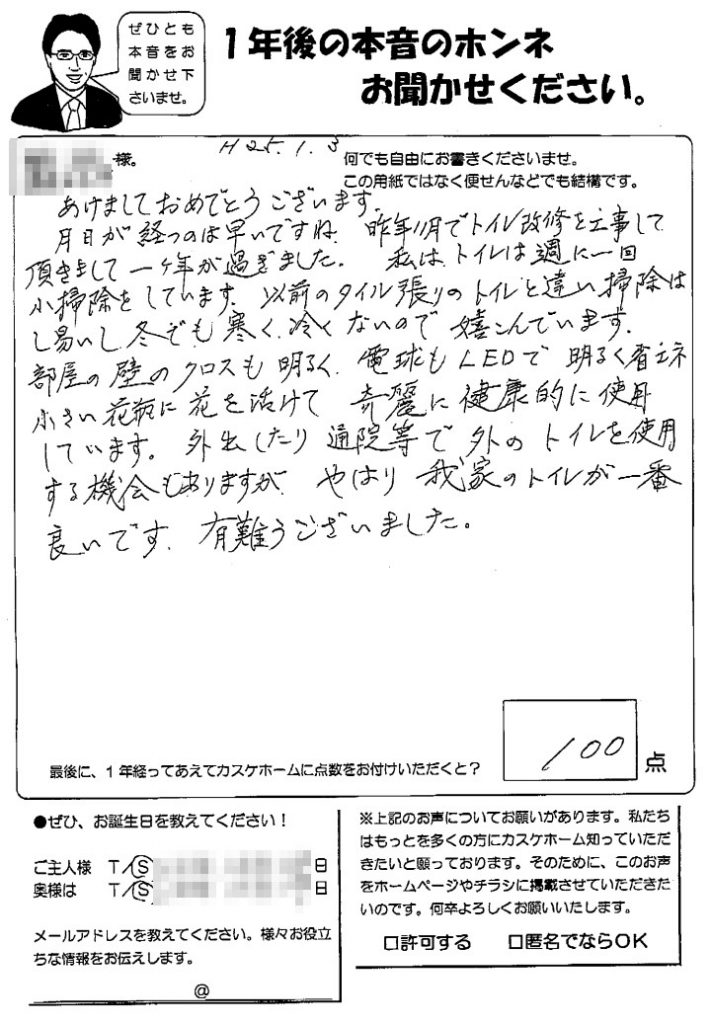 ぜひとも
本音をお
聞かせ下
さいませ。
１年後の本音のホンネ
お聞かせください。
様。
H25.1.3
何でも自由にお書きくださいませ。
この用紙ではなく便せんなどでも結構です。
あけましておめでとうございます。
月日が経つのは早いですね 昨年11月でトイレ改修を工事して
頂きまして一ヶ年が過ぎました。 私は、トイレは週に一回
小掃除をしています。以前のタイル張りのトイレと違い掃除は
し易いし冬でも寒く、冷くないので嬉こんでいます。
部屋の壁のクロスも明るく、電球もLEDで明るく省エネ
小さい花瓶に花を活けて 奇麗に健康的に使用
しています。外出したり通院等で外のトイレを使用
する機会もありますが、やはり我家のトイレが一番
良いです、有難うございました。
最後に、１年経ってあえてカスケホームに点数をお付けいただくと？
100
点
●ぜひ、お誕生日を教えてください！
ご主人様 T／S 日
奥様は T／S 日
メールアドレスを教えてください。様々お役立
ちな情報をお伝えします。
@
※上記のお声についてお願いがあります。私たち
はもっとを多くの方にカスケホーム知っていただ
きたいと願っております。そのために、このお声
をホームページやチラシに掲載させていただきた
いのです。何卒よろしくお願いいたします。
□許可する □匿名でならOK